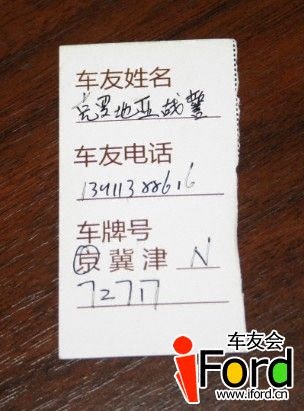 车友姓名
克罗地亚战警
车友电话
13911388616
车牌号
京 冀 津 N
72717
车友会
iFord
www.iford.cn